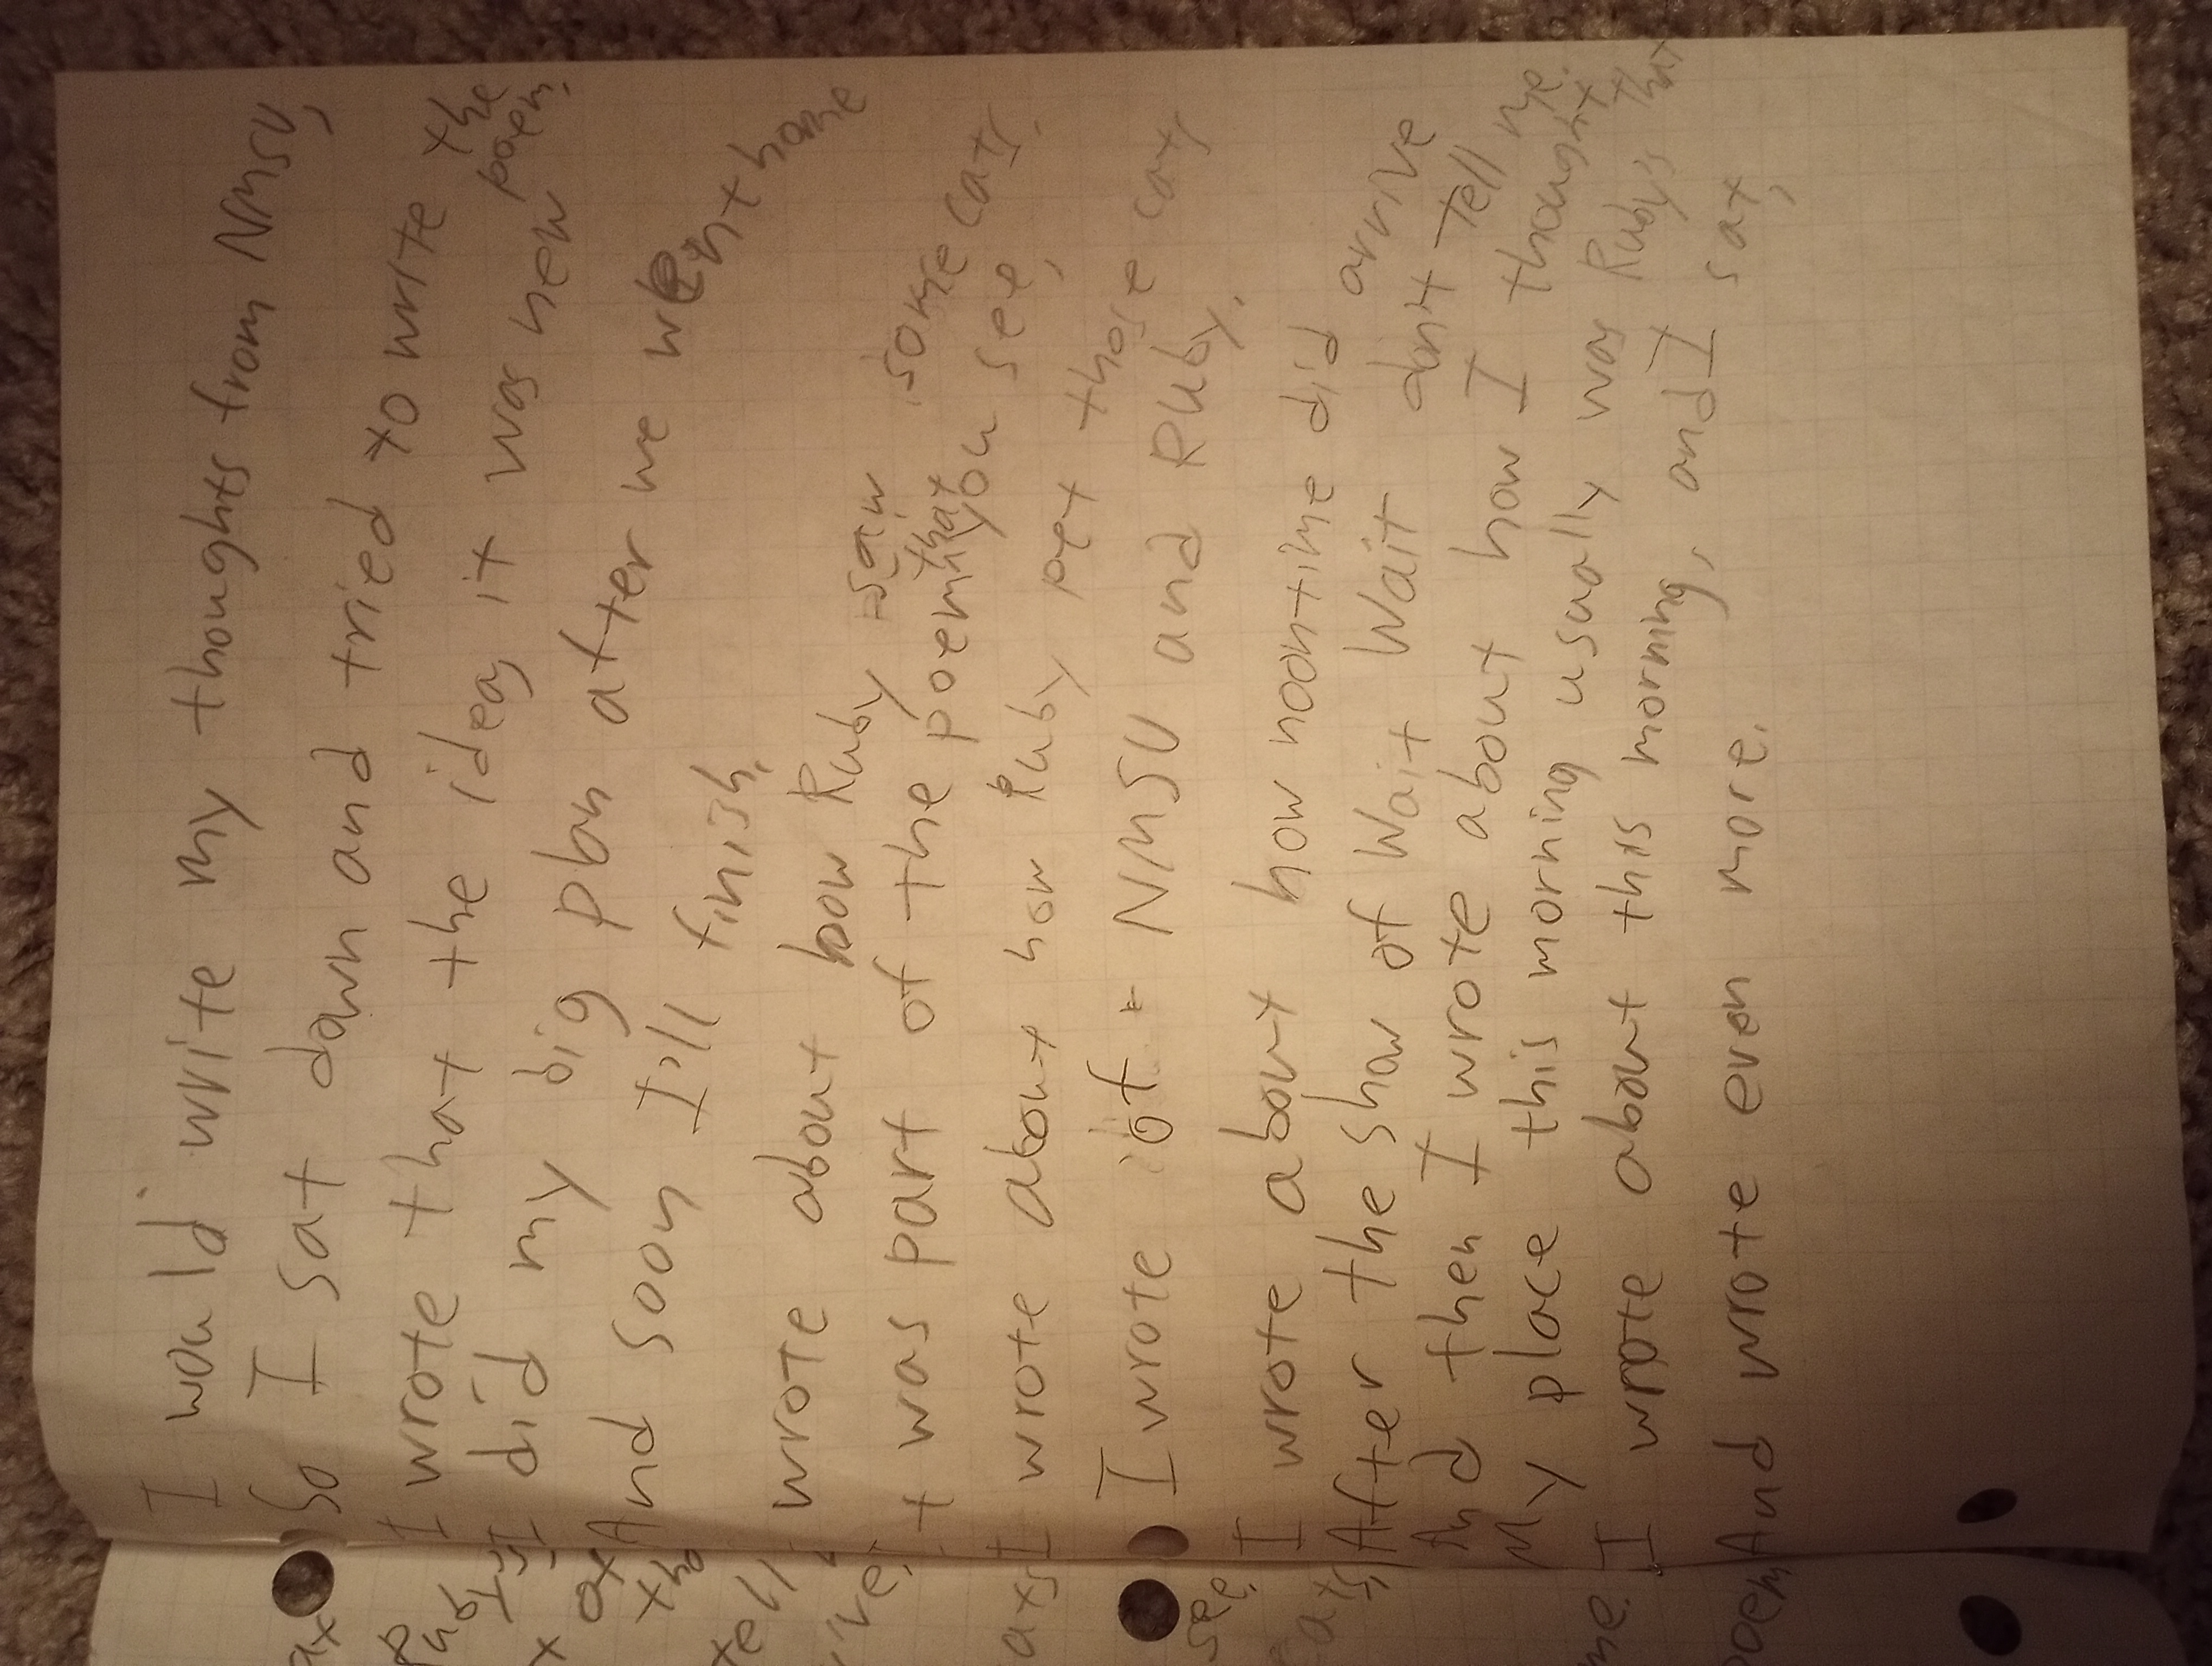 I would write my thoughts from NMSU,
So I sat down and tried to write the poem.
I wrote that the idea, it was new
I did my big plan after we went home
And soon I'll finish.
wrote about how Ruby saw some cats.
It was part of the poem that you see,
I wrote about how Ruby pet those cats
I wrote of NMSU and Ruby.
I wrote about how noontime did arrive
After the show of Wait Wait don't tell me.
And then I wrote about how I thought that
My place this morning usually was Ruby's
I wrote about this morning, and I sat,
And wrote even more.
at
Ruby's
x at
tho
tell
i've,
ats
see.
cats,
me.
poem